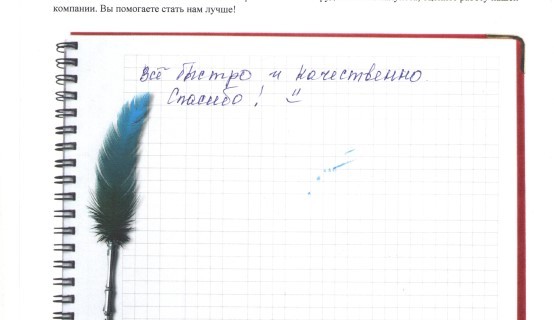 компании. Вы помогаете стать нам лучше!
Всё быстро и качественно.
Спасибо!